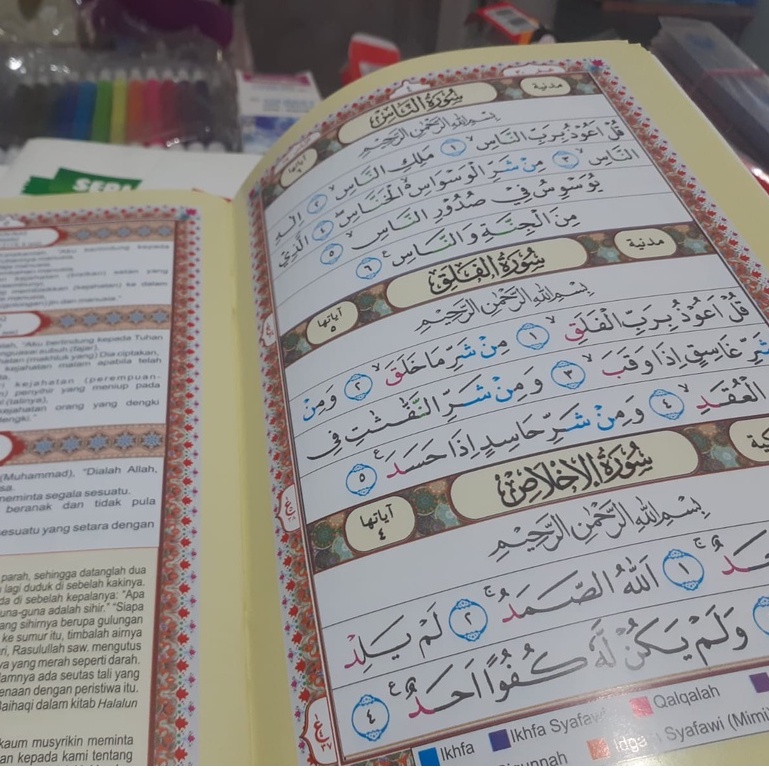 سورة الناس
مدنية
آياتها ٦
بِسْمِ اللهِ الرَّحْمٰنِ الرَّحِيْمِ
قُلْ اَعُوْذُ بِرَبِّ النَّاسِۙ ١ مَلِكِ النَّاسِۙ ٢ اِلٰهِ
النَّاسِۙ ٣ مِنْ شَرِّ الْوَسْوَاسِ ەۙ الْخَنَّاسِۖ ٤ الَّذِيْ
يُوَسْوِسُ فِيْ صُدُوْرِ النَّاسِۙ ٥
مِنَ الْجِنَّةِ وَالنَّاسِ ࣖ ٦
سورة الفلق
مدنية
آياتها ٥
بِسْمِ اللهِ الرَّحْمٰنِ الرَّحِيْمِ
قُلْ اَعُوْذُ بِرَبِّ الْفَلَقِۙ ١ مِنْ شَرِّ مَا خَلَقَۙ ٢ وَمِنْ
شَرِّ غَاسِقٍ اِذَا وَقَبَۙ ٣ وَمِنْ شَرِّ النَّفّٰثٰتِ فِى
الْعُقَدِۙ ٤ وَمِنْ شَرِّ حَاسِدٍ اِذَا حَسَدَ ࣖ ٥
سورة الإخلاص
آياتها ٤
بِسْمِ اللهِ الرَّحْمٰنِ الرَّحِيْمِ
١ اَللهُ الصَّمَدُۚ ٢ لَمْ يَلِدْ
وَلَمْ يَكُنْ لَّهٗ كُفُوًا اَحَدٌ ࣖ ٤
Ikhfa
Ikhfa Syafawi
Qalqalah
Syafawi (Mimi)
"Aku berlindung kepada
"Aku berlindung kepada Tuhan
(makhluk yang) Dia ciptakan,
kejahatan malam apabila telah
kejahatan (perempuan-
penyihir yang meniup pada
(talinya),
kejahatan orang yang dengki
dengki."
(Muhammad), "Dialah Allah,
meminta segala sesuatu.
beranak dan tidak pula
sesuatu yang setara dengan
parah, sehingga datanglah dua
lagi duduk di sebelah kakinya.
di sebelah kepalanya: "Apa
guna-guna adalah sihir." "Siapa
sihirnya berupa gulungan
ke sumur itu, timbalah airnya
Rasulullah saw. mengutus
yang merah seperti darah.
ada seutas tali yang
dengan peristiwa itu.
Baihaqi dalam kitab Halalun
kaum musyrikin meminta
kepada kami tentang